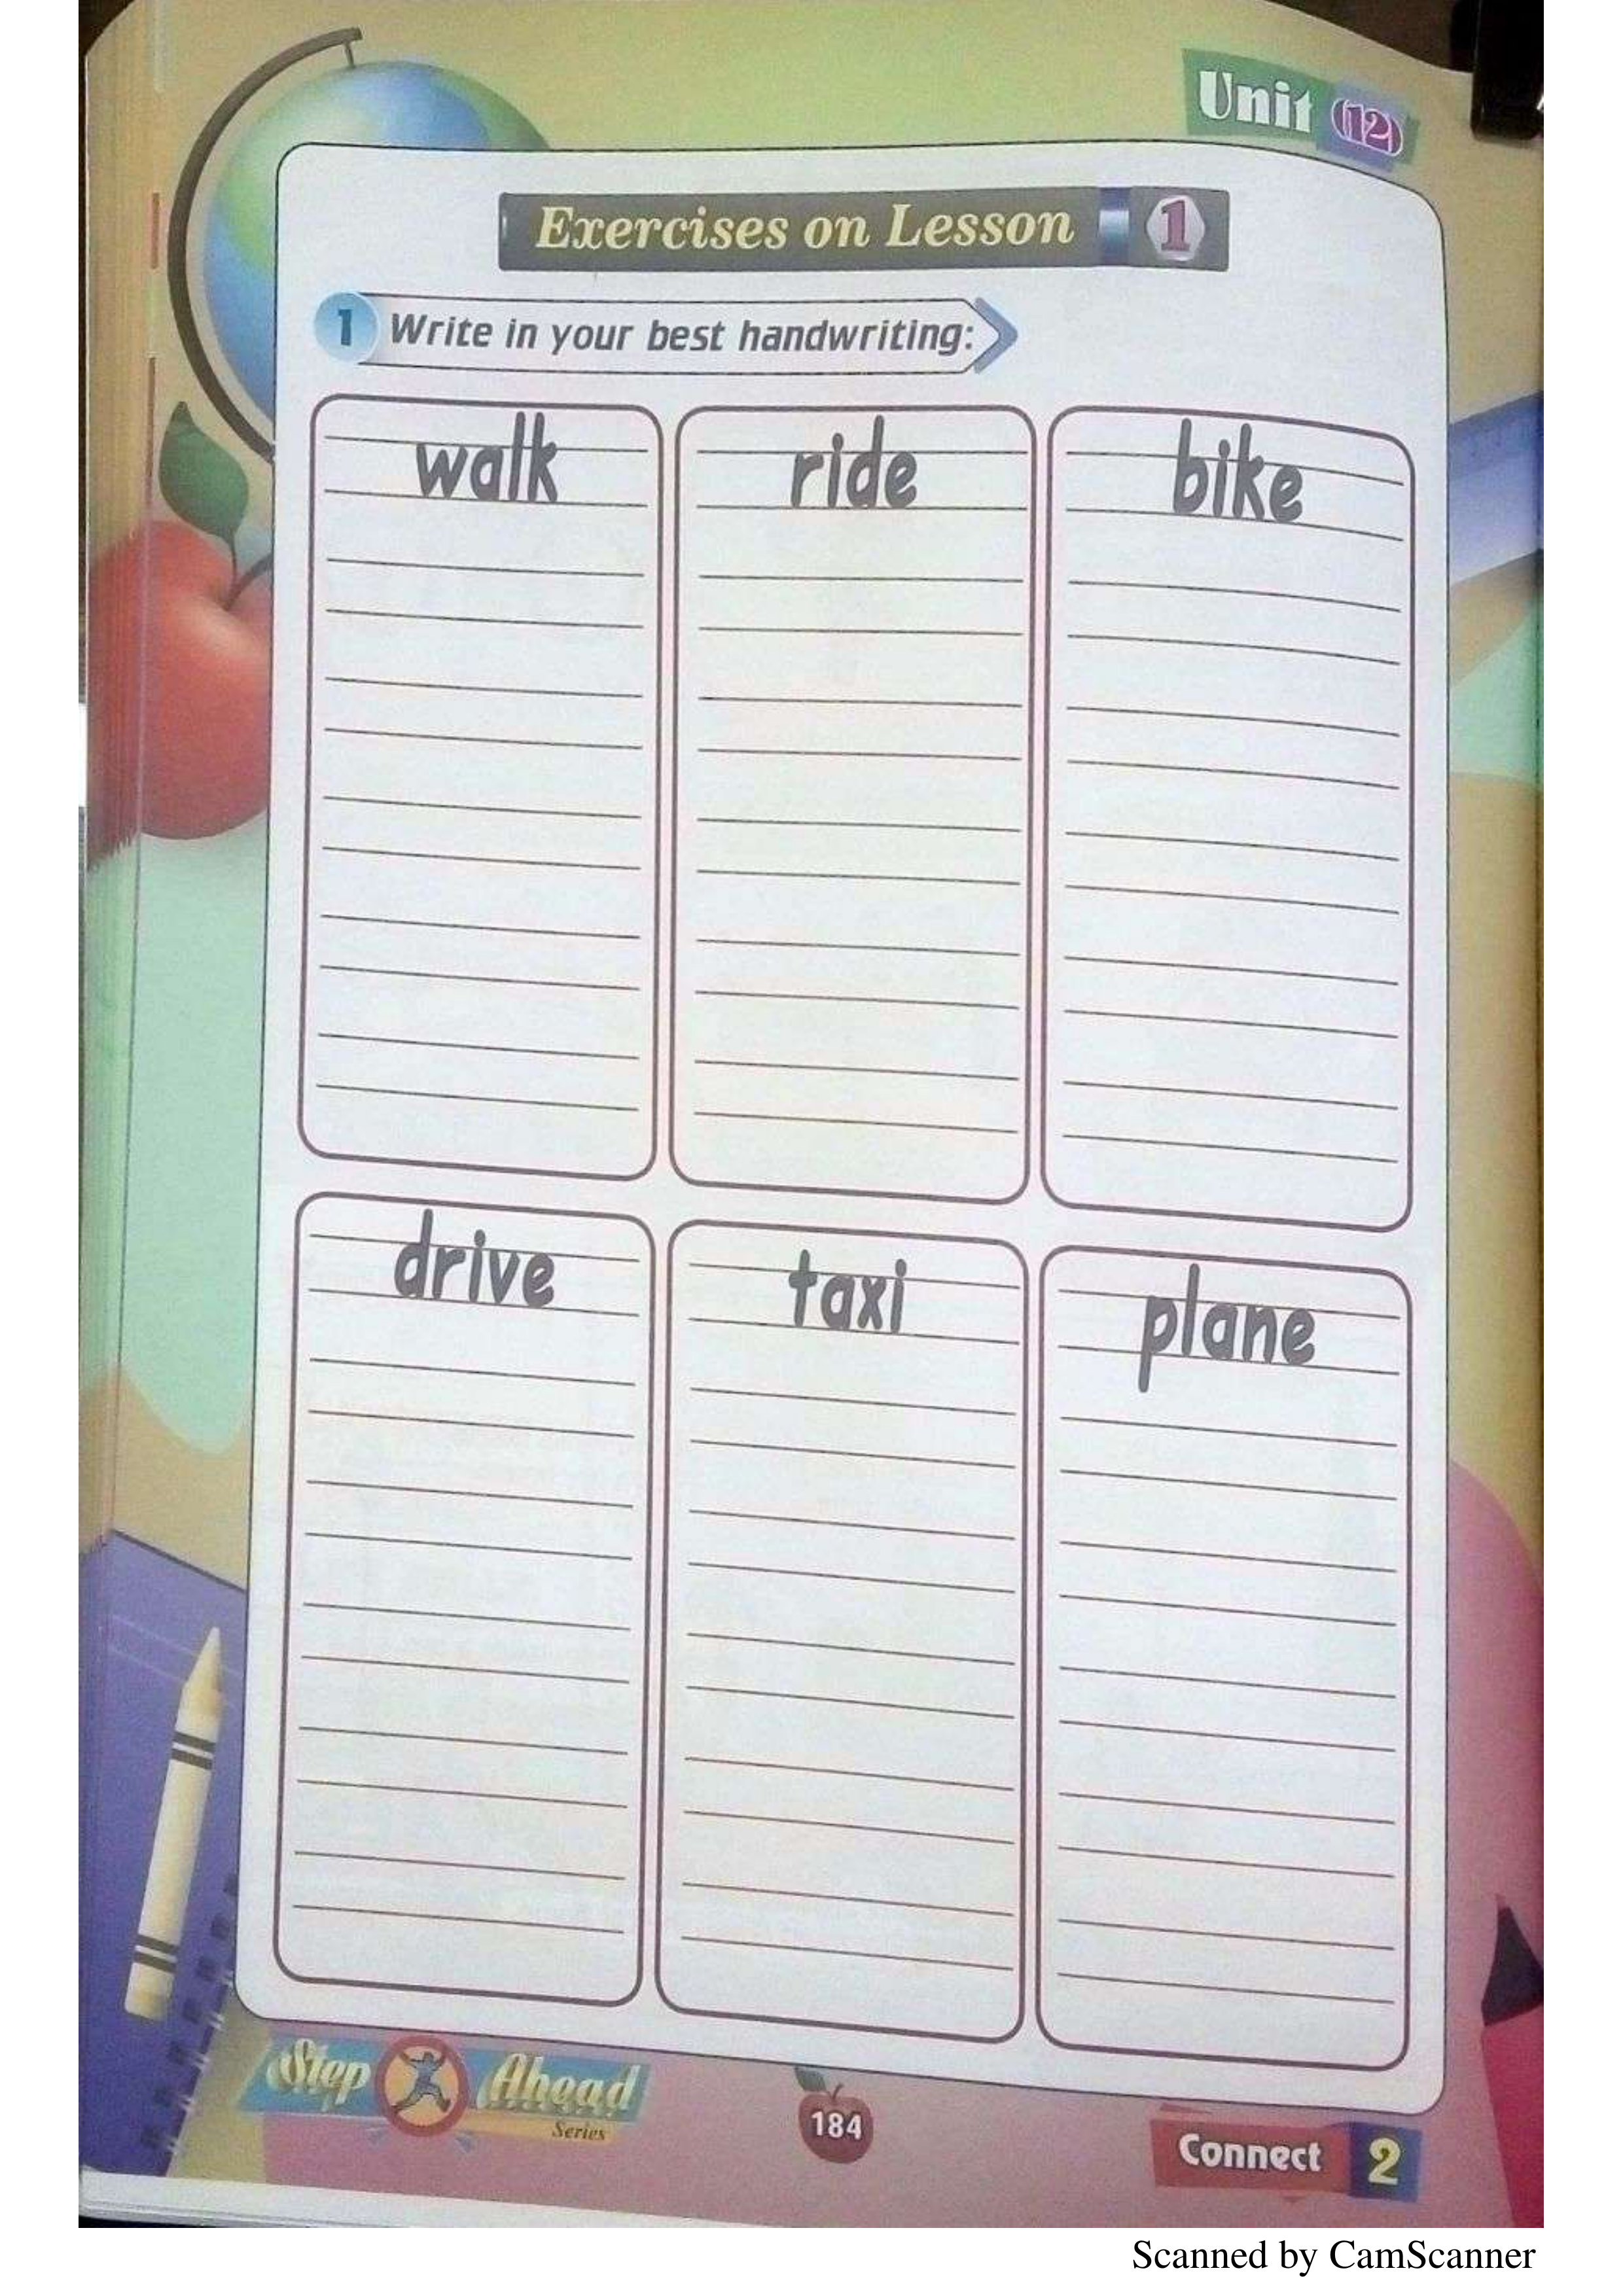 Unit (12)
Exercises on Lesson 1
1 Write in your best handwriting:
walk ride bike
drive taxi plane
Step Ahead
Series
184
Connect 2
Scanned by CamScanner